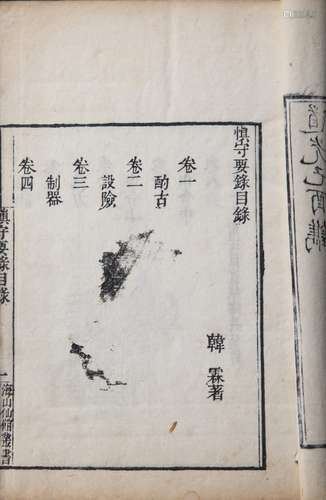 慎守要錄目錄
韓霖著
卷一
酌古
卷二
設險
卷三
制器
卷四
慎守要錄目錄
一
海山仙館叢書